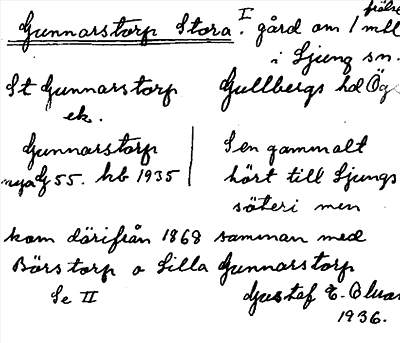 frälse
Gunnarstorp Stora. I gård om 1 mtl
i Ljung sn.
St Gunnarstorp Gullbergs hd Ög
ek.
Gunnarstorp Sen gammalt
nya G 55. hb 1935 hört till Ljungs
säteri men
kom därifrån 1868 samman med
Börstorp o Lilla Gunnarstorp
Se II Gustaf E.
1936.